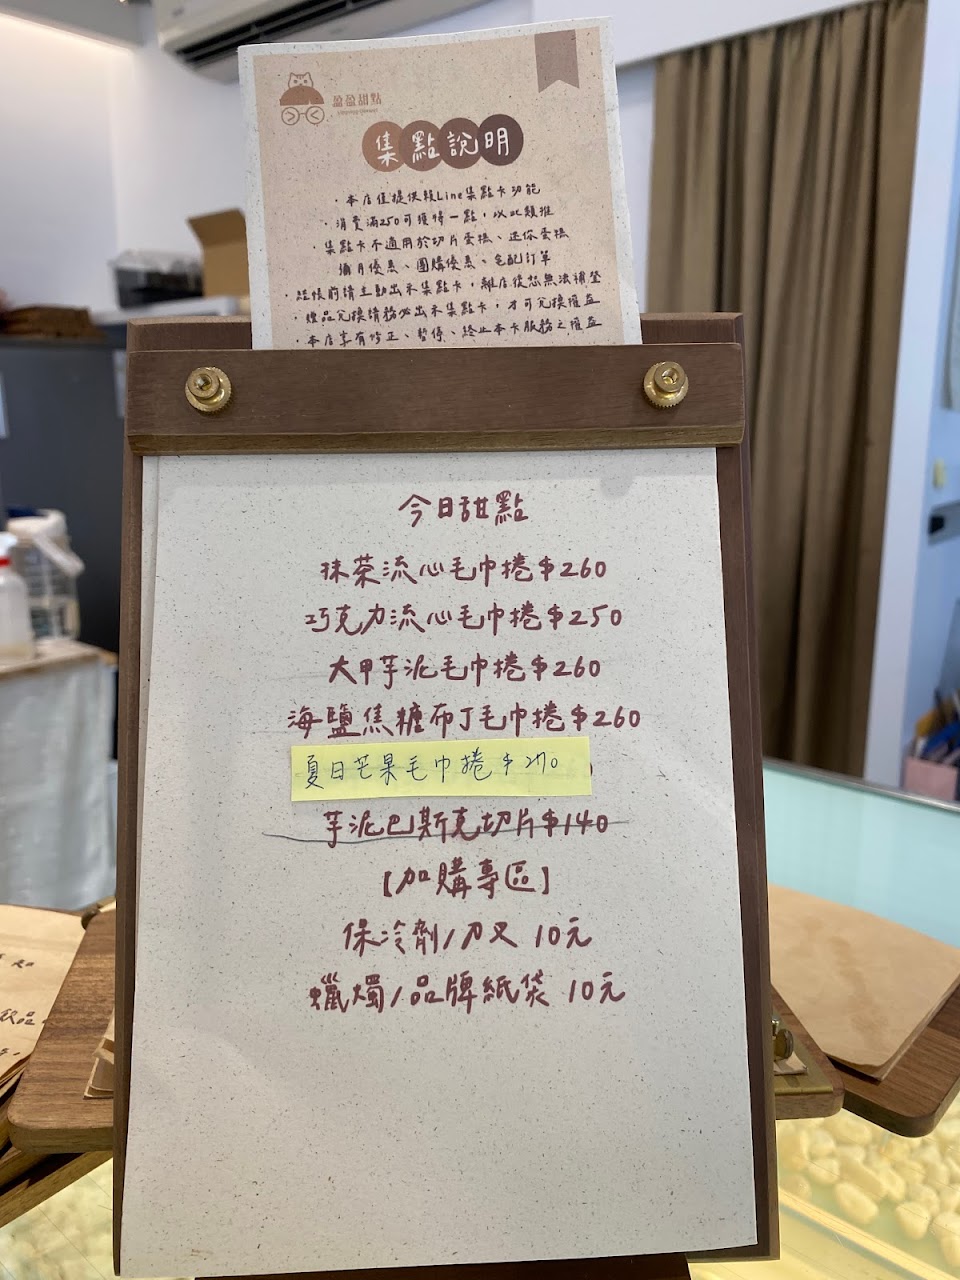 盈盈甜點
集點說明
・本店僅提供賴Line集點卡功能
・消費滿250可獲得一點，以此類推
・集點卡不適用於切片蛋糕、迷你蛋糕
彌月優惠、團購優惠、宅配訂單
・結帳前請主動出示集點卡，離店後恕無法補登
・禮品兌換請務必出示集點卡，才可兌換權益
・本店享有修正、暫停、終止本卡服務之權益
今日甜點
抹茶流心毛巾捲$260
巧克力流心毛巾捲$250
大甲芋泥毛巾捲$260
海鹽焦糖布丁毛巾捲$260
夏日芒果毛巾捲$270
芋泥巴斯克切片$140
【加購專區】
保冷劑/刀叉 10元
蠟燭/品牌紙袋 10元